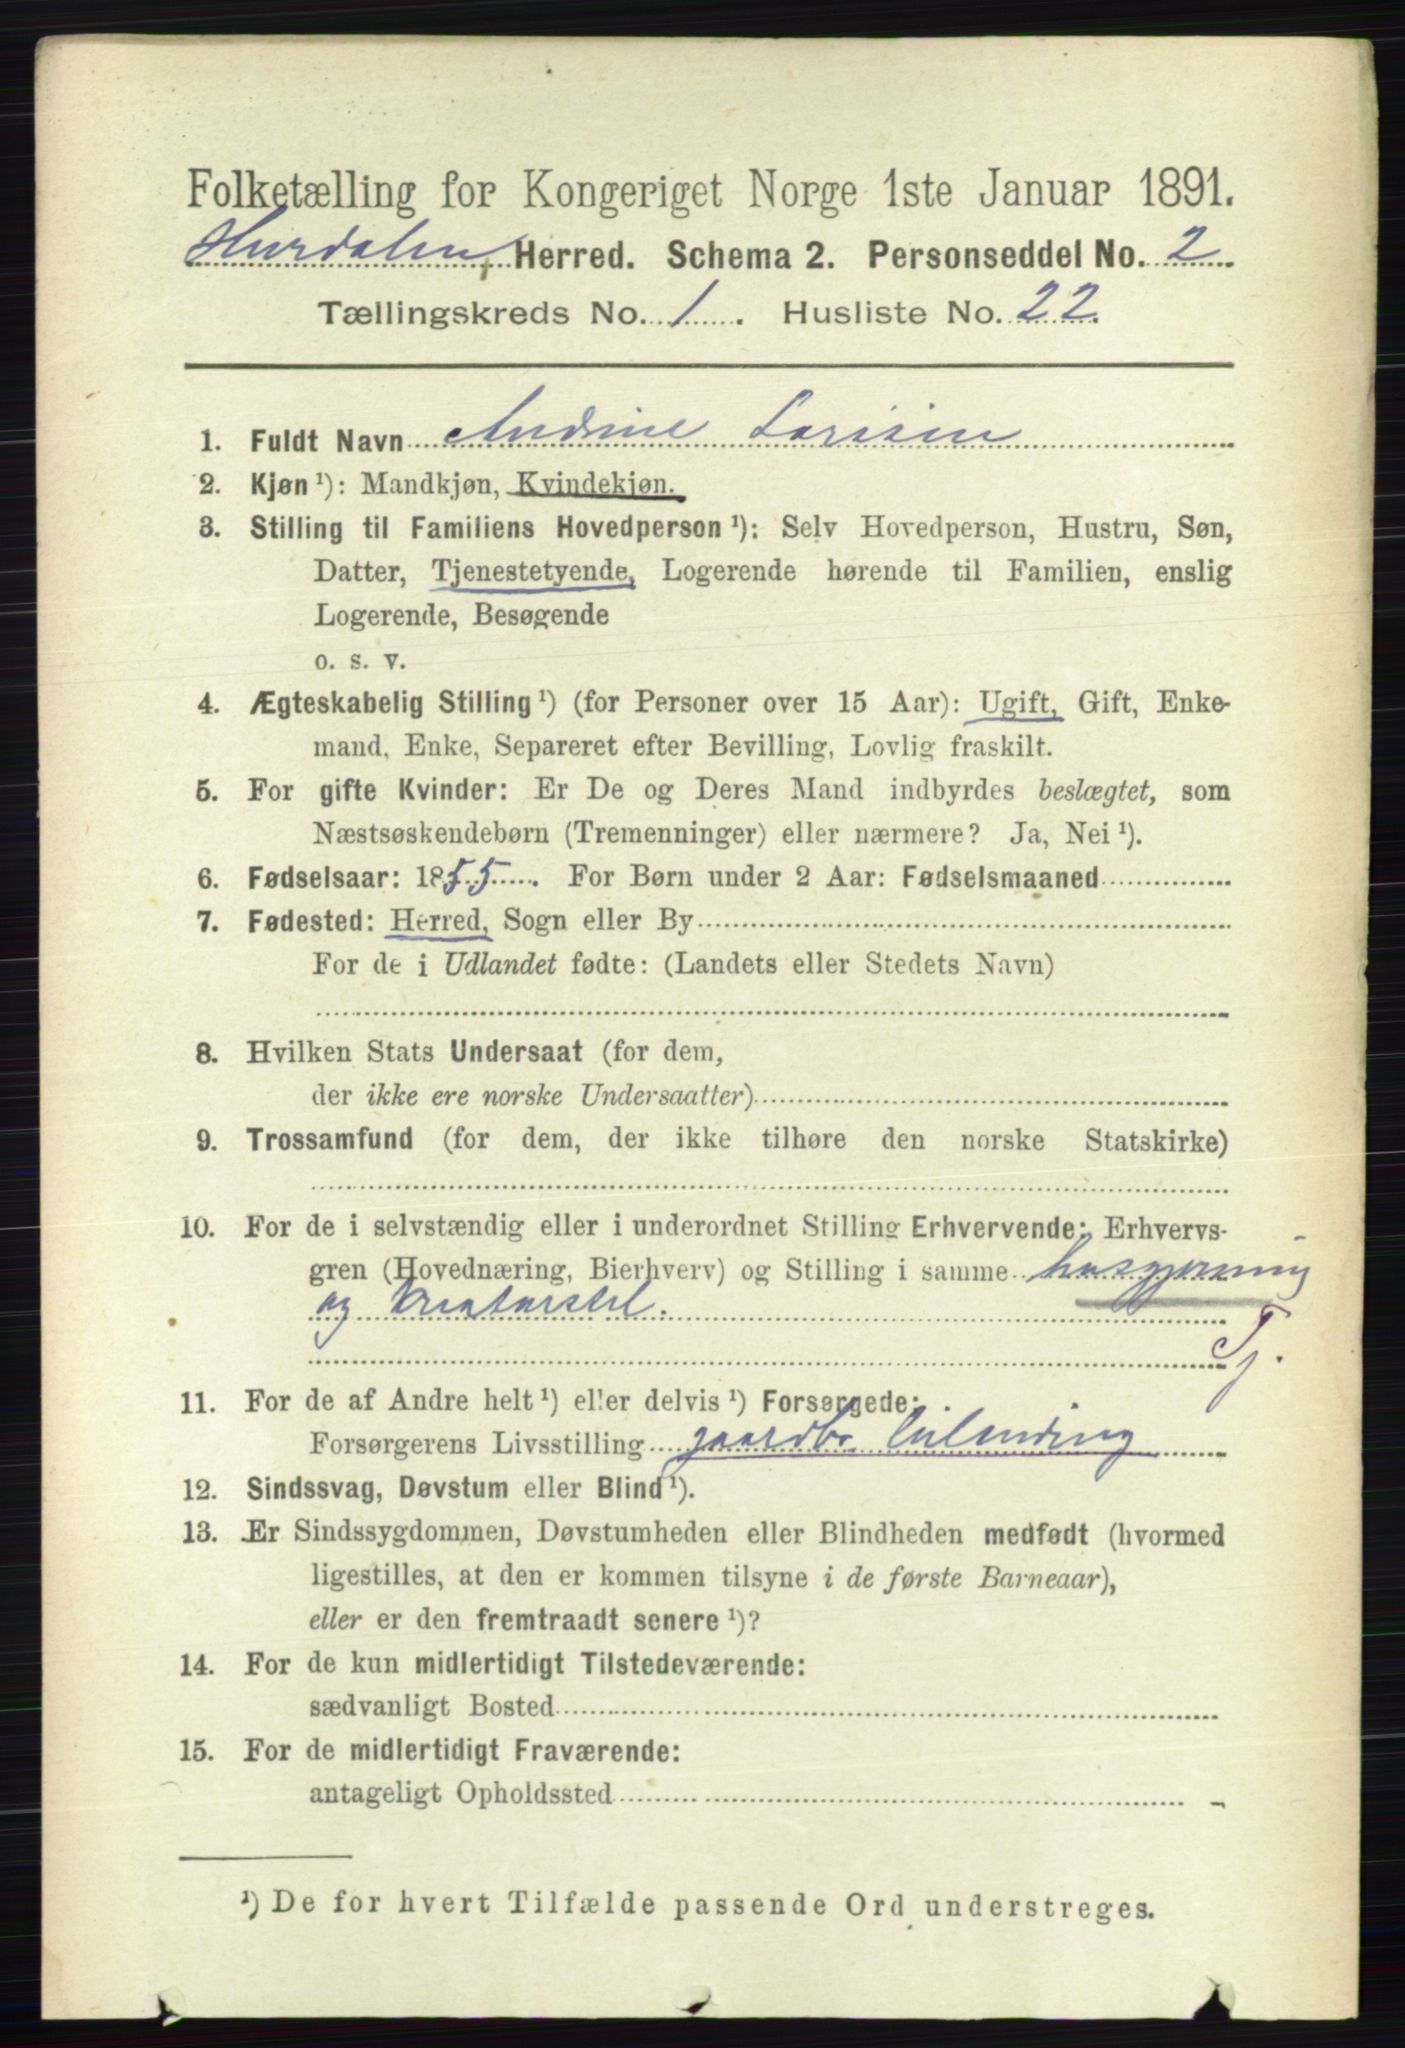 Folketælling for Kongeriget Norge 1ste Januar 1891.
Hurdalen Herred. Schema 2. Personseddel No. 2
Tællingskreds No. 1. Husliste No. 22.
1. Fuldt Navn Andrine Larsen
2. Kjøn ¹): Mandkjøn, Kvindekjøn.
3. Stilling til Familiens Hovedperson ¹): Selv Hovedperson, Hustru, Søn,
Datter, Tjenestetyende, Logerende hørende til Familien, enslig
Logerende, Besøgende
o. s. v.
4. Ægteskabelig Stilling ¹) (for Personer over 15 Aar): Ugift, Gift, Enke-
mand, Enke, Separeret efter Bevilling, Lovlig fraskilt.
5. For gifte Kvinder: Er De og Deres Mand indbyrdes beslægtet, som
Næstsøskendebørn (Tremenninger) eller nærmere? Ja, Nei ¹).
6. Fødselsaar: 1855. For Børn under 2 Aar: Fødselsmaaned
7. Fødested: Herred, Sogn eller By
For de i Udlandet fødte: (Landets eller Stedets Navn)
8. Hvilken Stats Undersaat (for dem,
der ikke ere norske Undersaatter)
9. Trossamfund (for dem, der ikke tilhøre den norske Statskirke)
10. For de i selvstændig eller i underordnet Stilling Erhvervende: Erhvervs-
gren (Hovednæring, Bierhverv) og Stilling i samme husgjerning
og Kreaturstel.
Tj.
11. For de af Andre helt ¹) eller delvis ¹) Forsørgede:
Forsørgerens Livsstilling gaardbr.
12. Sindssvag, Døvstum eller Blind ¹).
13. Er Sindssygdommen, Døvstumheden eller Blindheden medfødt (hvormed
ligestilles, at den er kommen tilsyne i de første Barneaar),
eller er den fremtraadt senere ¹)?
14. For de kun midlertidigt Tilstedeværende:
sædvanligt Bosted
15. For de midlertidigt Fraværende:
antageligt Opholdssted
¹) De for hvert Tilfælde passende Ord understreges.